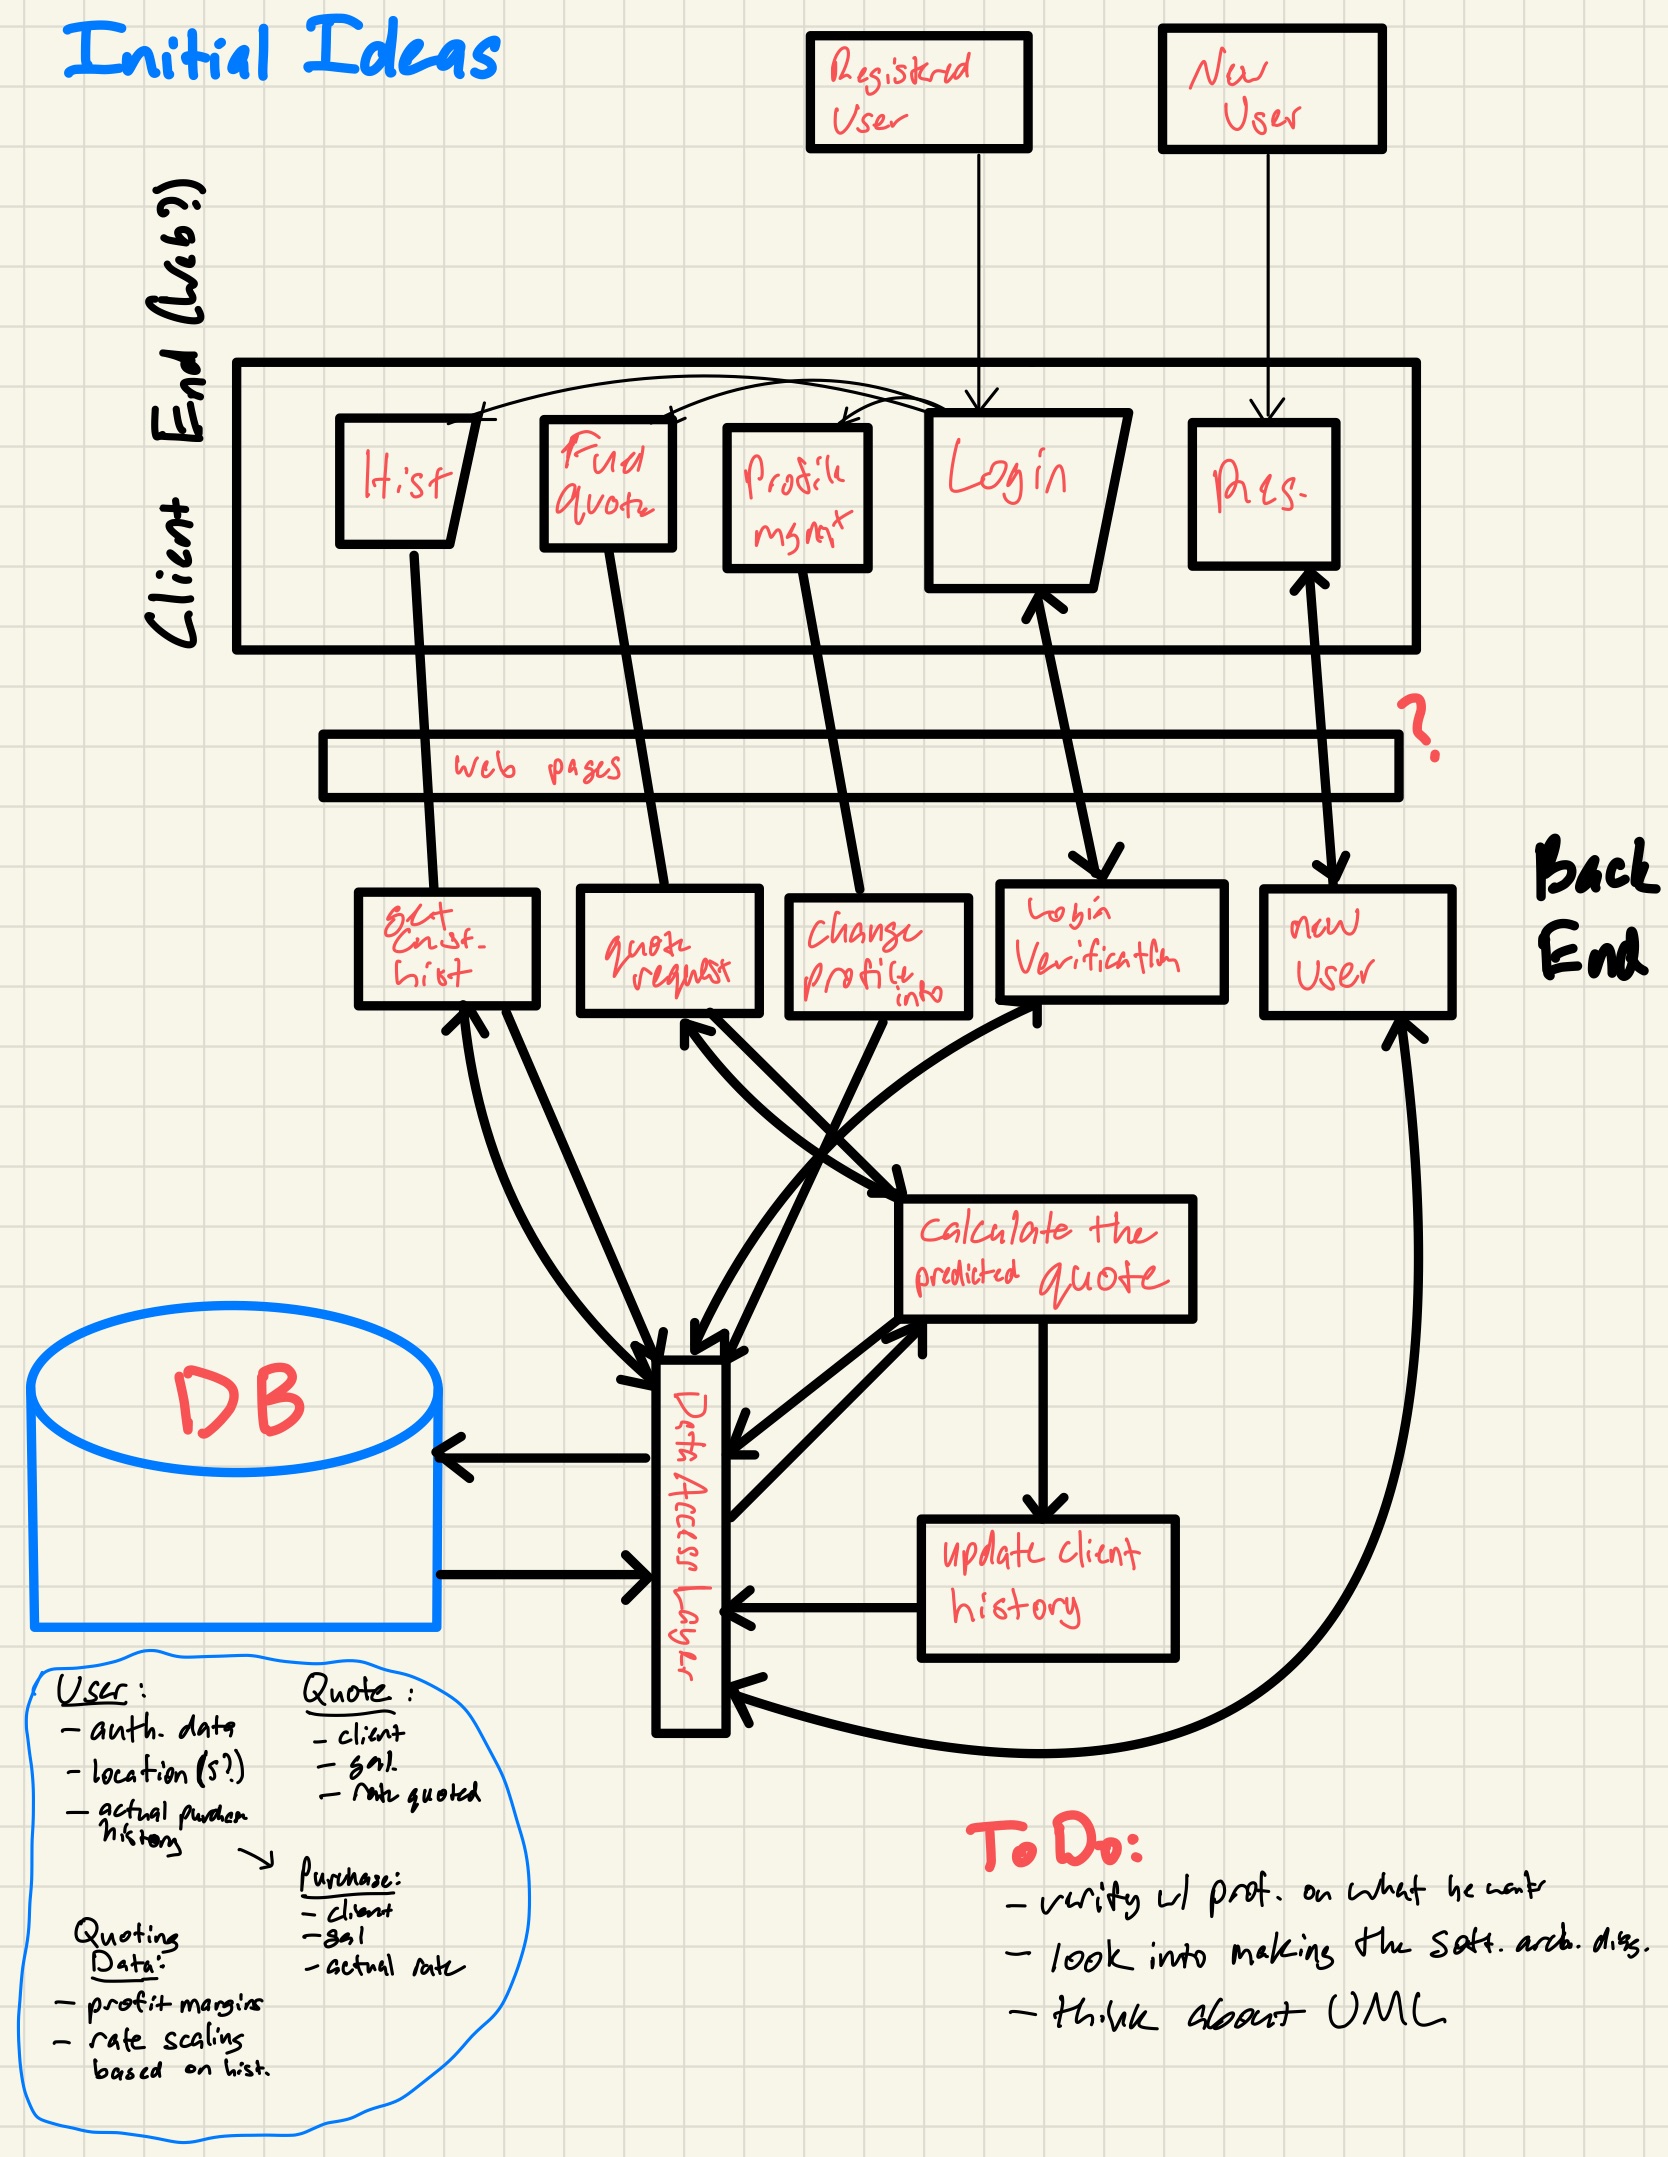 Initial Ideas
Registered
User
New
User
Client End (Web?)
Hist
Fuel
quote
Profile
mgmt
Login
Reg.
?
web pages
Back
End
get
cust.
hist
quote
request
change
profile
info
Login
Verification
new
user
calculate the
predicted quote
DB
Data Access Layer
update client
history
User:
- auth. data
- location(s?)
- actual purchase
history
Quote:
- client
- gal.
- rate quoted
Purchase:
- client
- gal
- actual rate
Quoting
Data:
- profit margins
- rate scaling
based on hist.
To Do:
- verify w/ prof. on what he wants
- look into making the soft. arch. diag.
- think about UML